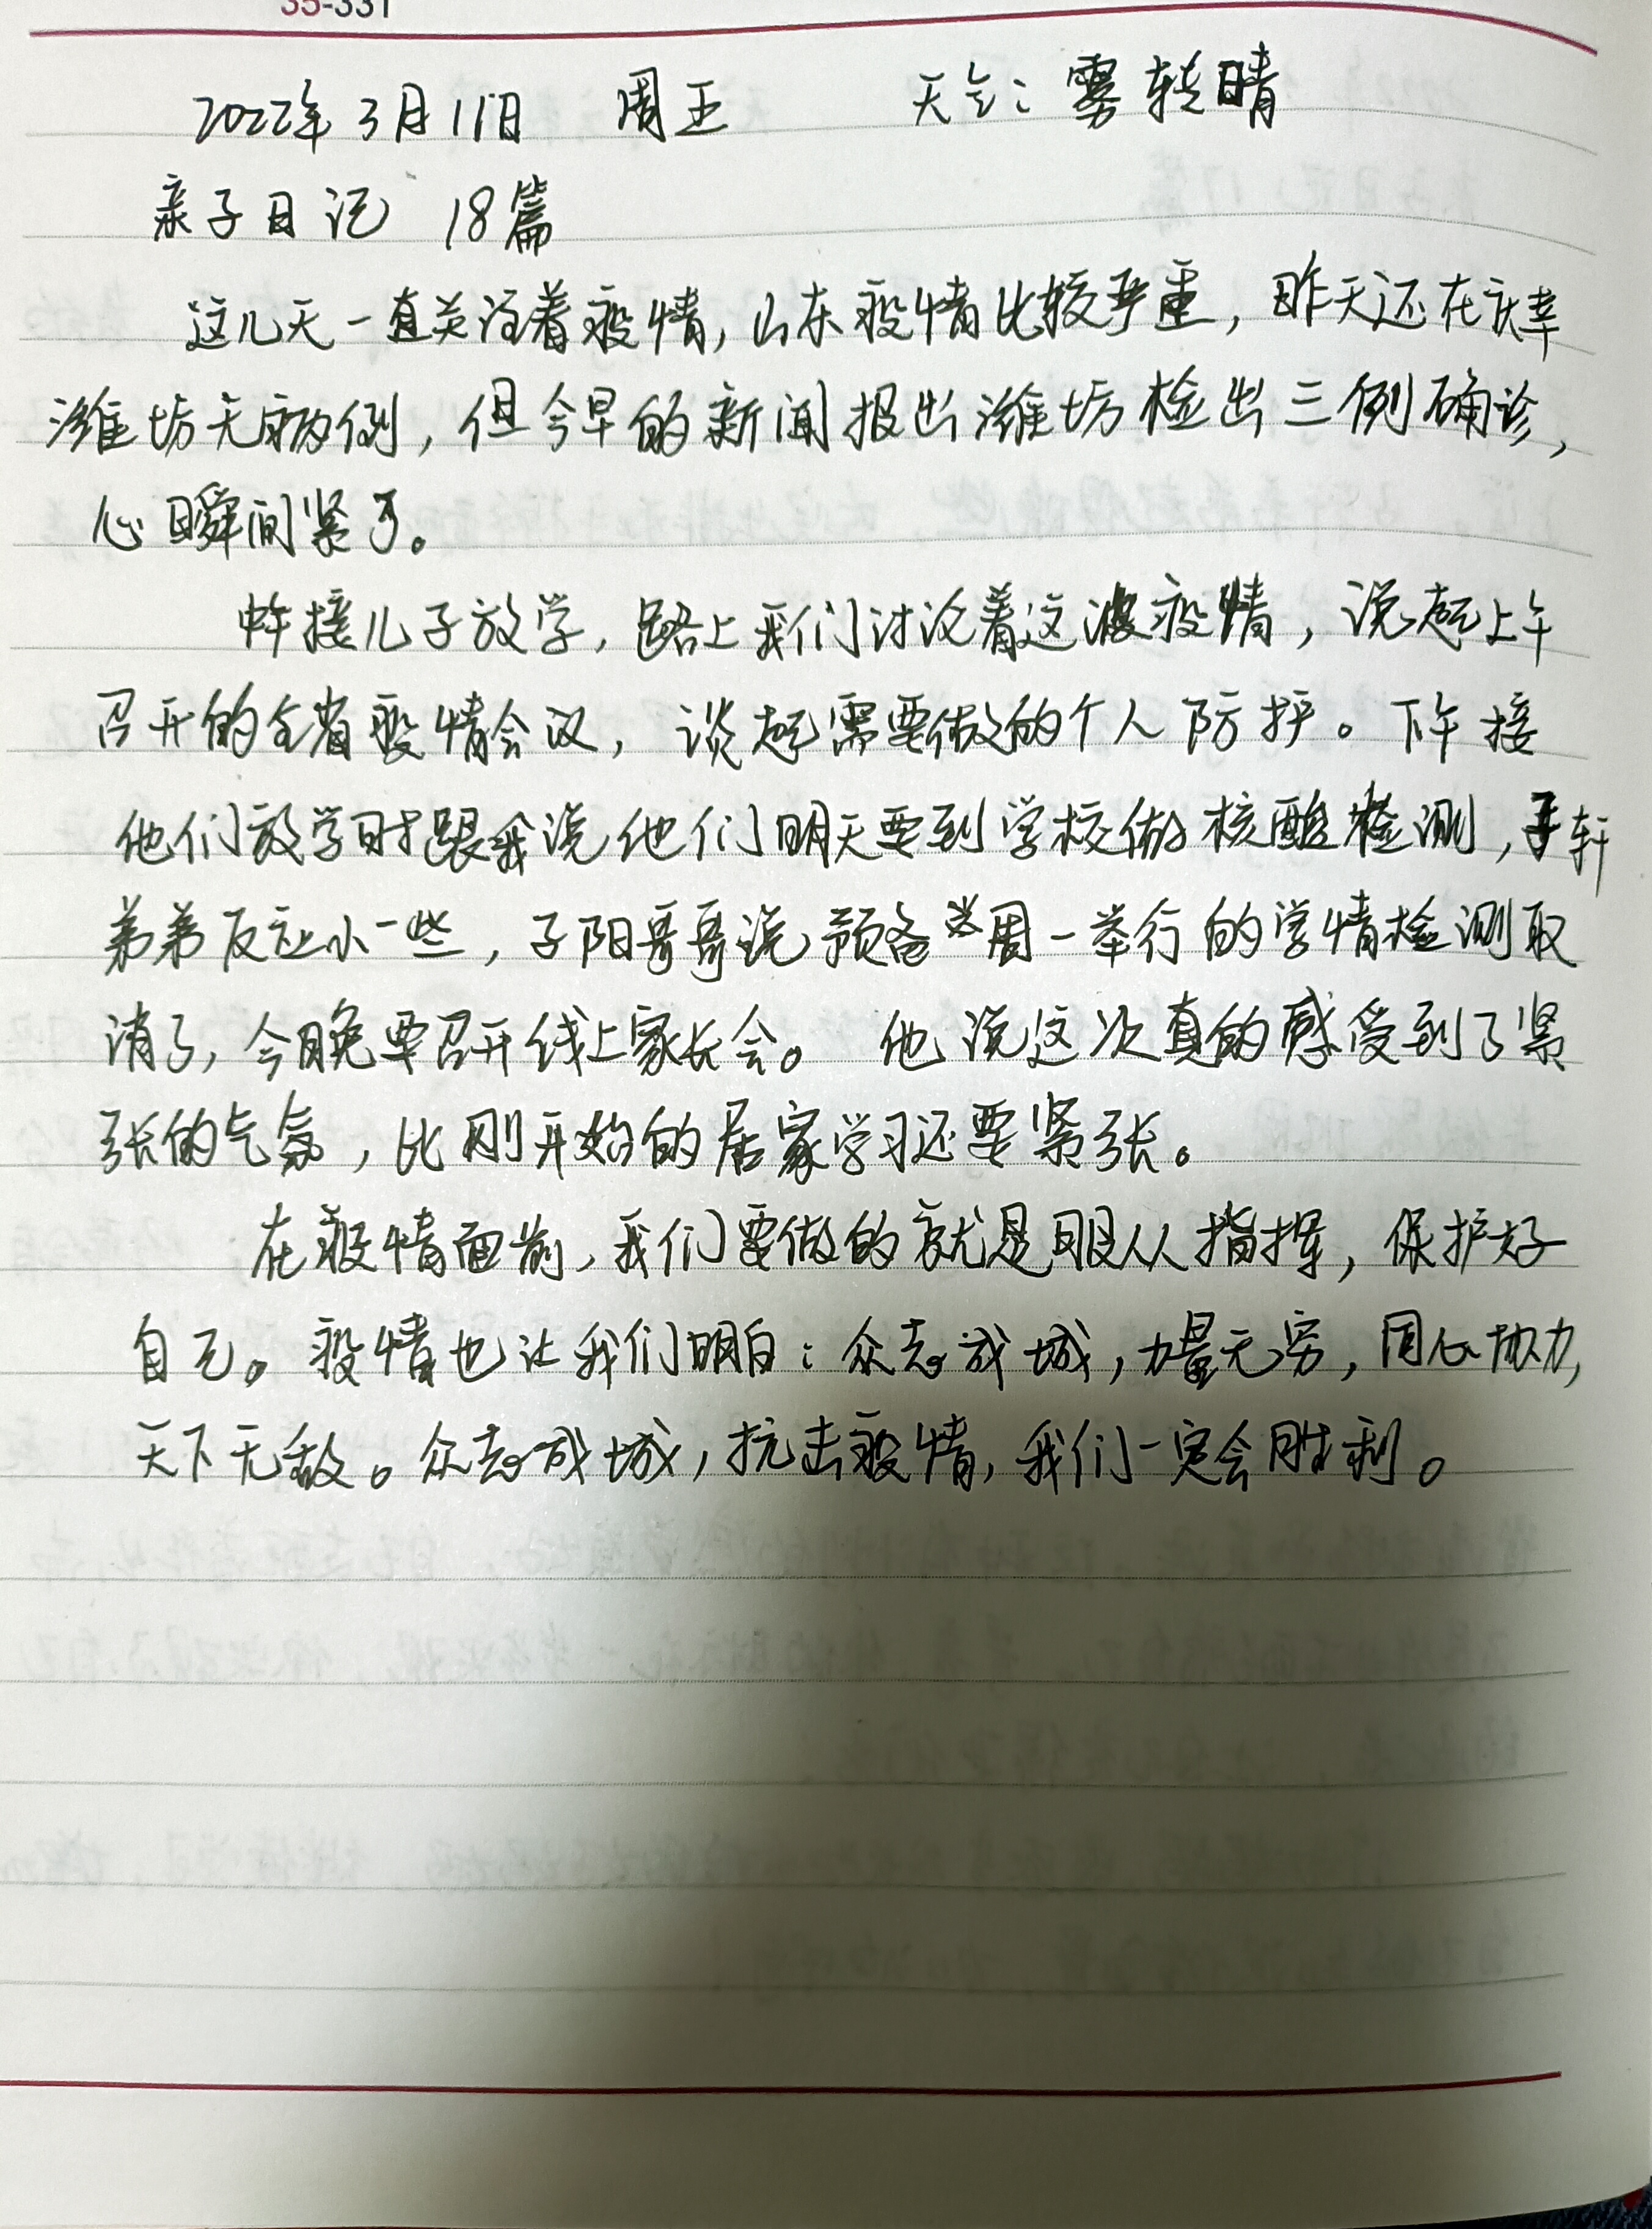 35-331
2022年3月11日 周五 天气：雾转晴
亲子日记 18篇
这几天一直关注着疫情，山东疫情比较严重，昨天还在庆幸
潍坊无病例，但今早的新闻报出潍坊检出三例确诊，
心瞬间紧了。
中午接儿子放学，路上我们讨论着这波疫情，说起上午
召开的全省疫情会议，谈起需要做的个人防护。下午接
他们放学时跟我说他们明天要到学校做核酸检测，子轩
弟弟反应小一些，子阳哥哥说预备周一举行的学情检测取
消了，今晚要召开线上家长会。他说这次真的感受到了紧
张的气氛，比刚开始的居家学习还要紧张。
在疫情面前，我们要做的就是服从指挥，保护好
自己。疫情也让我们明白：众志成城，力量无穷，同心协力，
天下无敌。众志成城，抗击疫情，我们一定会胜利。